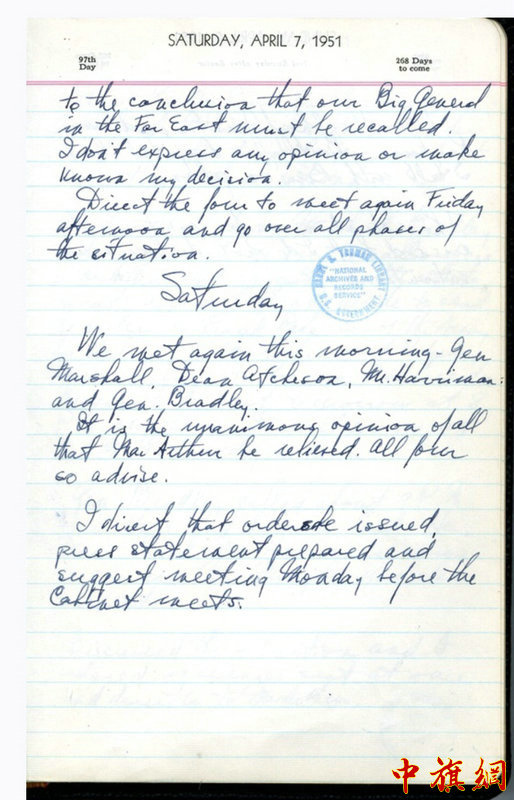 SATURDAY, APRIL 7, 1951
97th
Day
268 Days
to come
to the conclusion that our Big General
in the Far East must be recalled.
I don't express any opinion or make
known my decision.
Direct the four to meet again Friday
afternoon and go over all phases of
the situation.
HARRY S. TRUMAN LIBRARY
"NATIONAL
ARCHIVES AND
RECORDS
SERVICE"
U.S. GOVERNMENT
Saturday
We met again this morning - Gen
Marshall, Dean Atcheson, Mr. Harriman
and Gen. Bradley.
It is the unanimous opinion of all
that MacArthur be relieved. All four
so advise.
I direct that orders be issued,
press statement prepared and
suggest meeting Monday before the
Cabinet meets.
中旗網